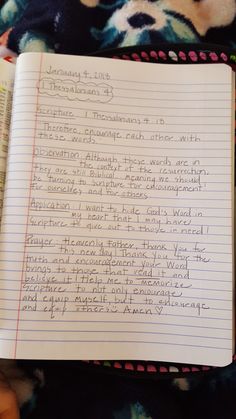 January 4, 2018
1 Thessalonians 4
Scripture: 1 Thessalonians 4:18
Therefore, encourage each other with
these words.
Observation: Although these words are in
the context of the resurrection,
they are still Biblical, meaning we should
be turning to Scripture for encouragement
for ourselves and for others.
Application: I want to hide God's Word in
my heart that I may have
Scripture to give out to those in need!
Prayer: Heavenly Father, thank you for
this new day! Thank you for the
truth and encouragement your Word
brings to those that read it and
believe it! Help me to memorize
Scripture to not only encourage
and equip myself, but to encourage
and equip others! Amen ♡